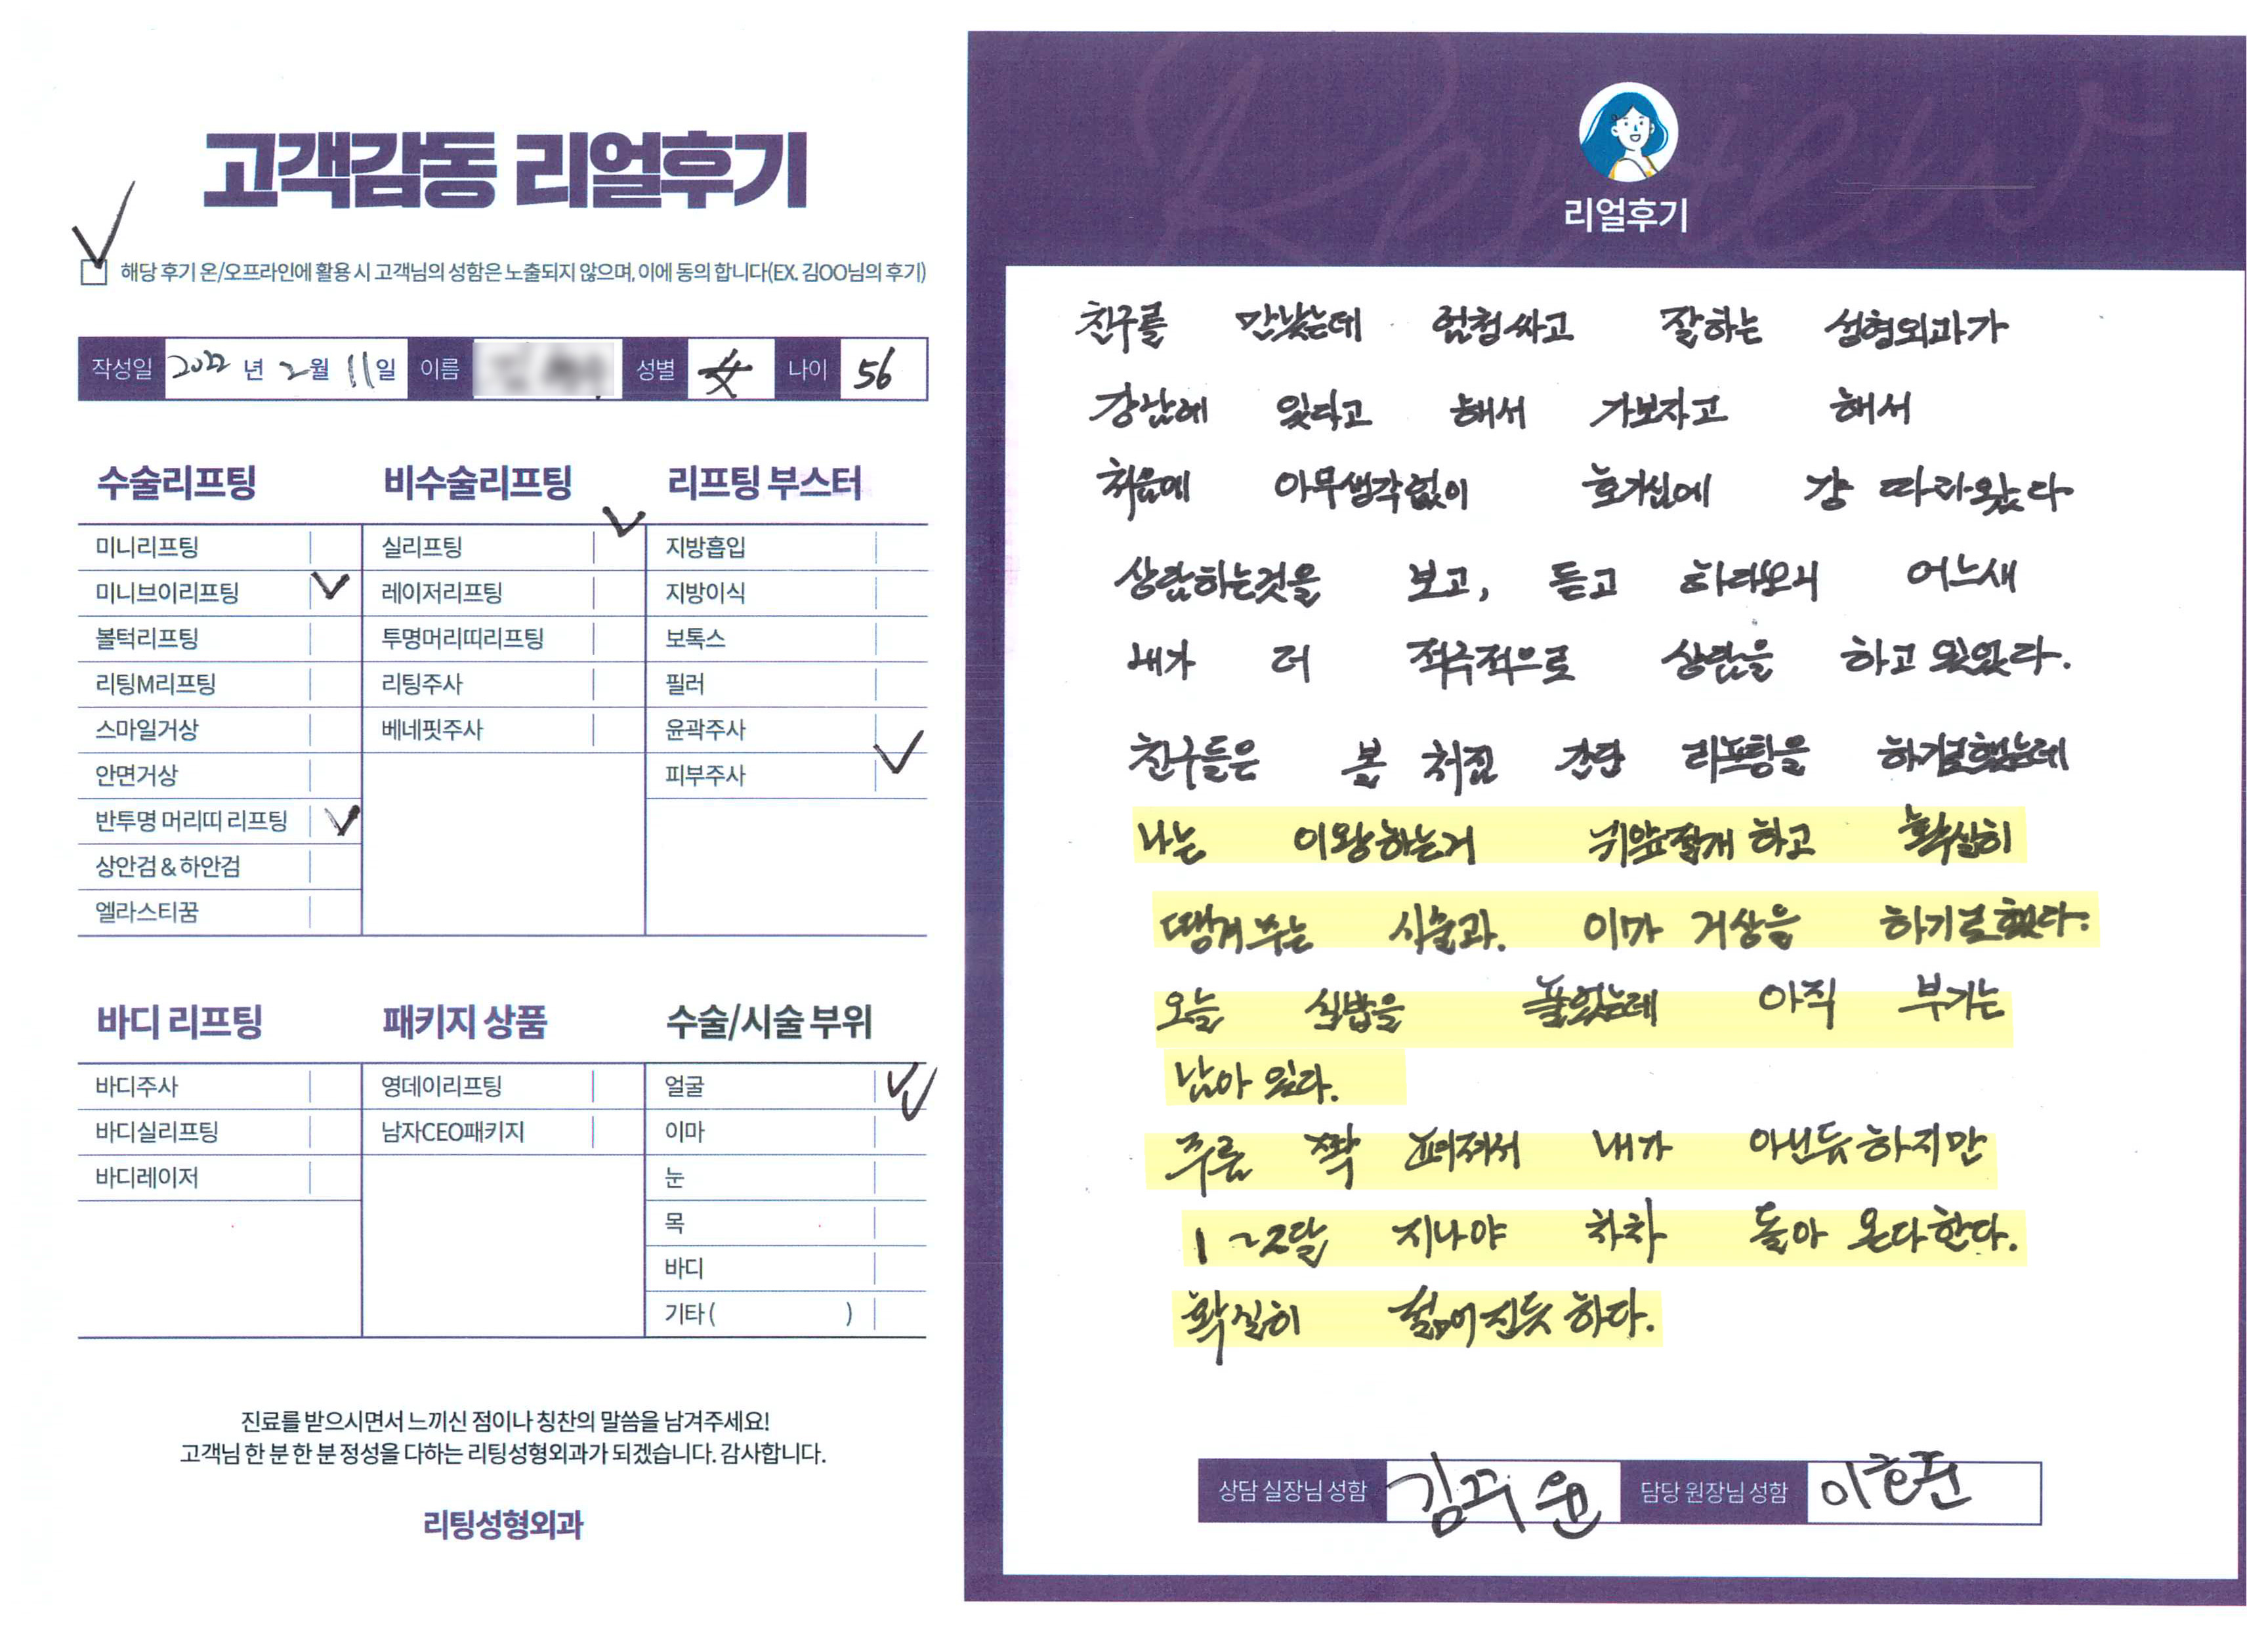 고객감동 리얼후기
해당 후기 온/오프라인에 활용 시 고객님의 성함은 노출되지 않으며, 이에 동의 합니다(EX. 김OO님의 후기)
작성일 2022 년 2월 11일 이름 성별 女 나이 56
수술리프팅
미니리프팅
미니브이리프팅
볼턱리프팅
리팅M리프팅
스마일거상
안면거상
반투명 머리띠 리프팅
상안검 & 하안검
엘라스티꿈
비수술리프팅
실리프팅
레이저리프팅
투명머리띠리프팅
리팅주사
베네핏주사
리프팅 부스터
지방흡입
지방이식
보톡스
필러
윤곽주사
피부주사
바디 리프팅
바디주사
바디실리프팅
바디레이저
패키지 상품
영데이리프팅
남자CEO패키지
수술/시술 부위
얼굴
이마
눈
목
바디
기타 ( )
진료를 받으시면서 느끼신 점이나 칭찬의 말씀을 남겨주세요!
고객님 한 분 한 분 정성을 다하는 리팅성형외과가 되겠습니다. 감사합니다.
리팅성형외과
Review
리얼후기
친구를 만났는데 엄청싸고 잘하는 성형외과가
강남에 있다고 해서 가보자고 해서
처음에 아무생각없이 호기심에 걍 따라왔다
상담하는것을 보고, 듣고 하다보니 어느새
내가 더 적극적으로 상담을 하고 있었다.
친구들은 볼 처짐 간단 리프팅을 하기로했는데
나는 이왕하는거 하고 확실히
땡겨주는 시술과. 이마 거상을 하기로했다.
오늘 실밥을 풀었는데 아직 부기는
남아 있다.
주름 쫙 펴져서 내가 아닌듯하지만
1~2달 지나야 차차 돌아 온다한다.
확실히 젊어진듯 하다.
상담 실장님 성함 담당 원장님 성함 이호준